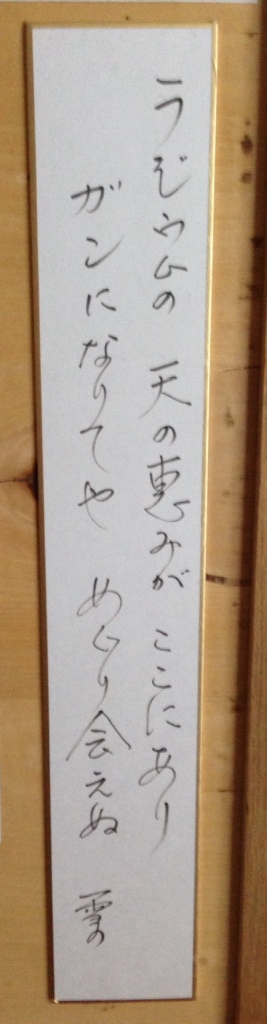 ラジウムの 天の恵みが ここにあり
ガンになりてや めぐり会えぬ